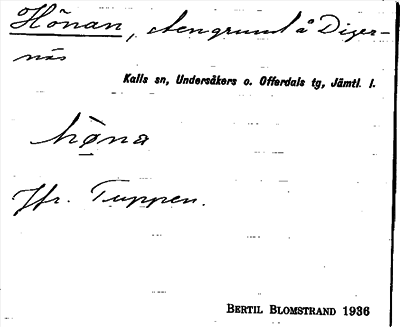 Hönan, stengrund å Diger-
näs
Kalls sn, Undersåkers o. Offerdals tg, Jämtl. l.
hø̱na
Jfr. Tuppen.
BERTIL BLOMSTRAND 1936